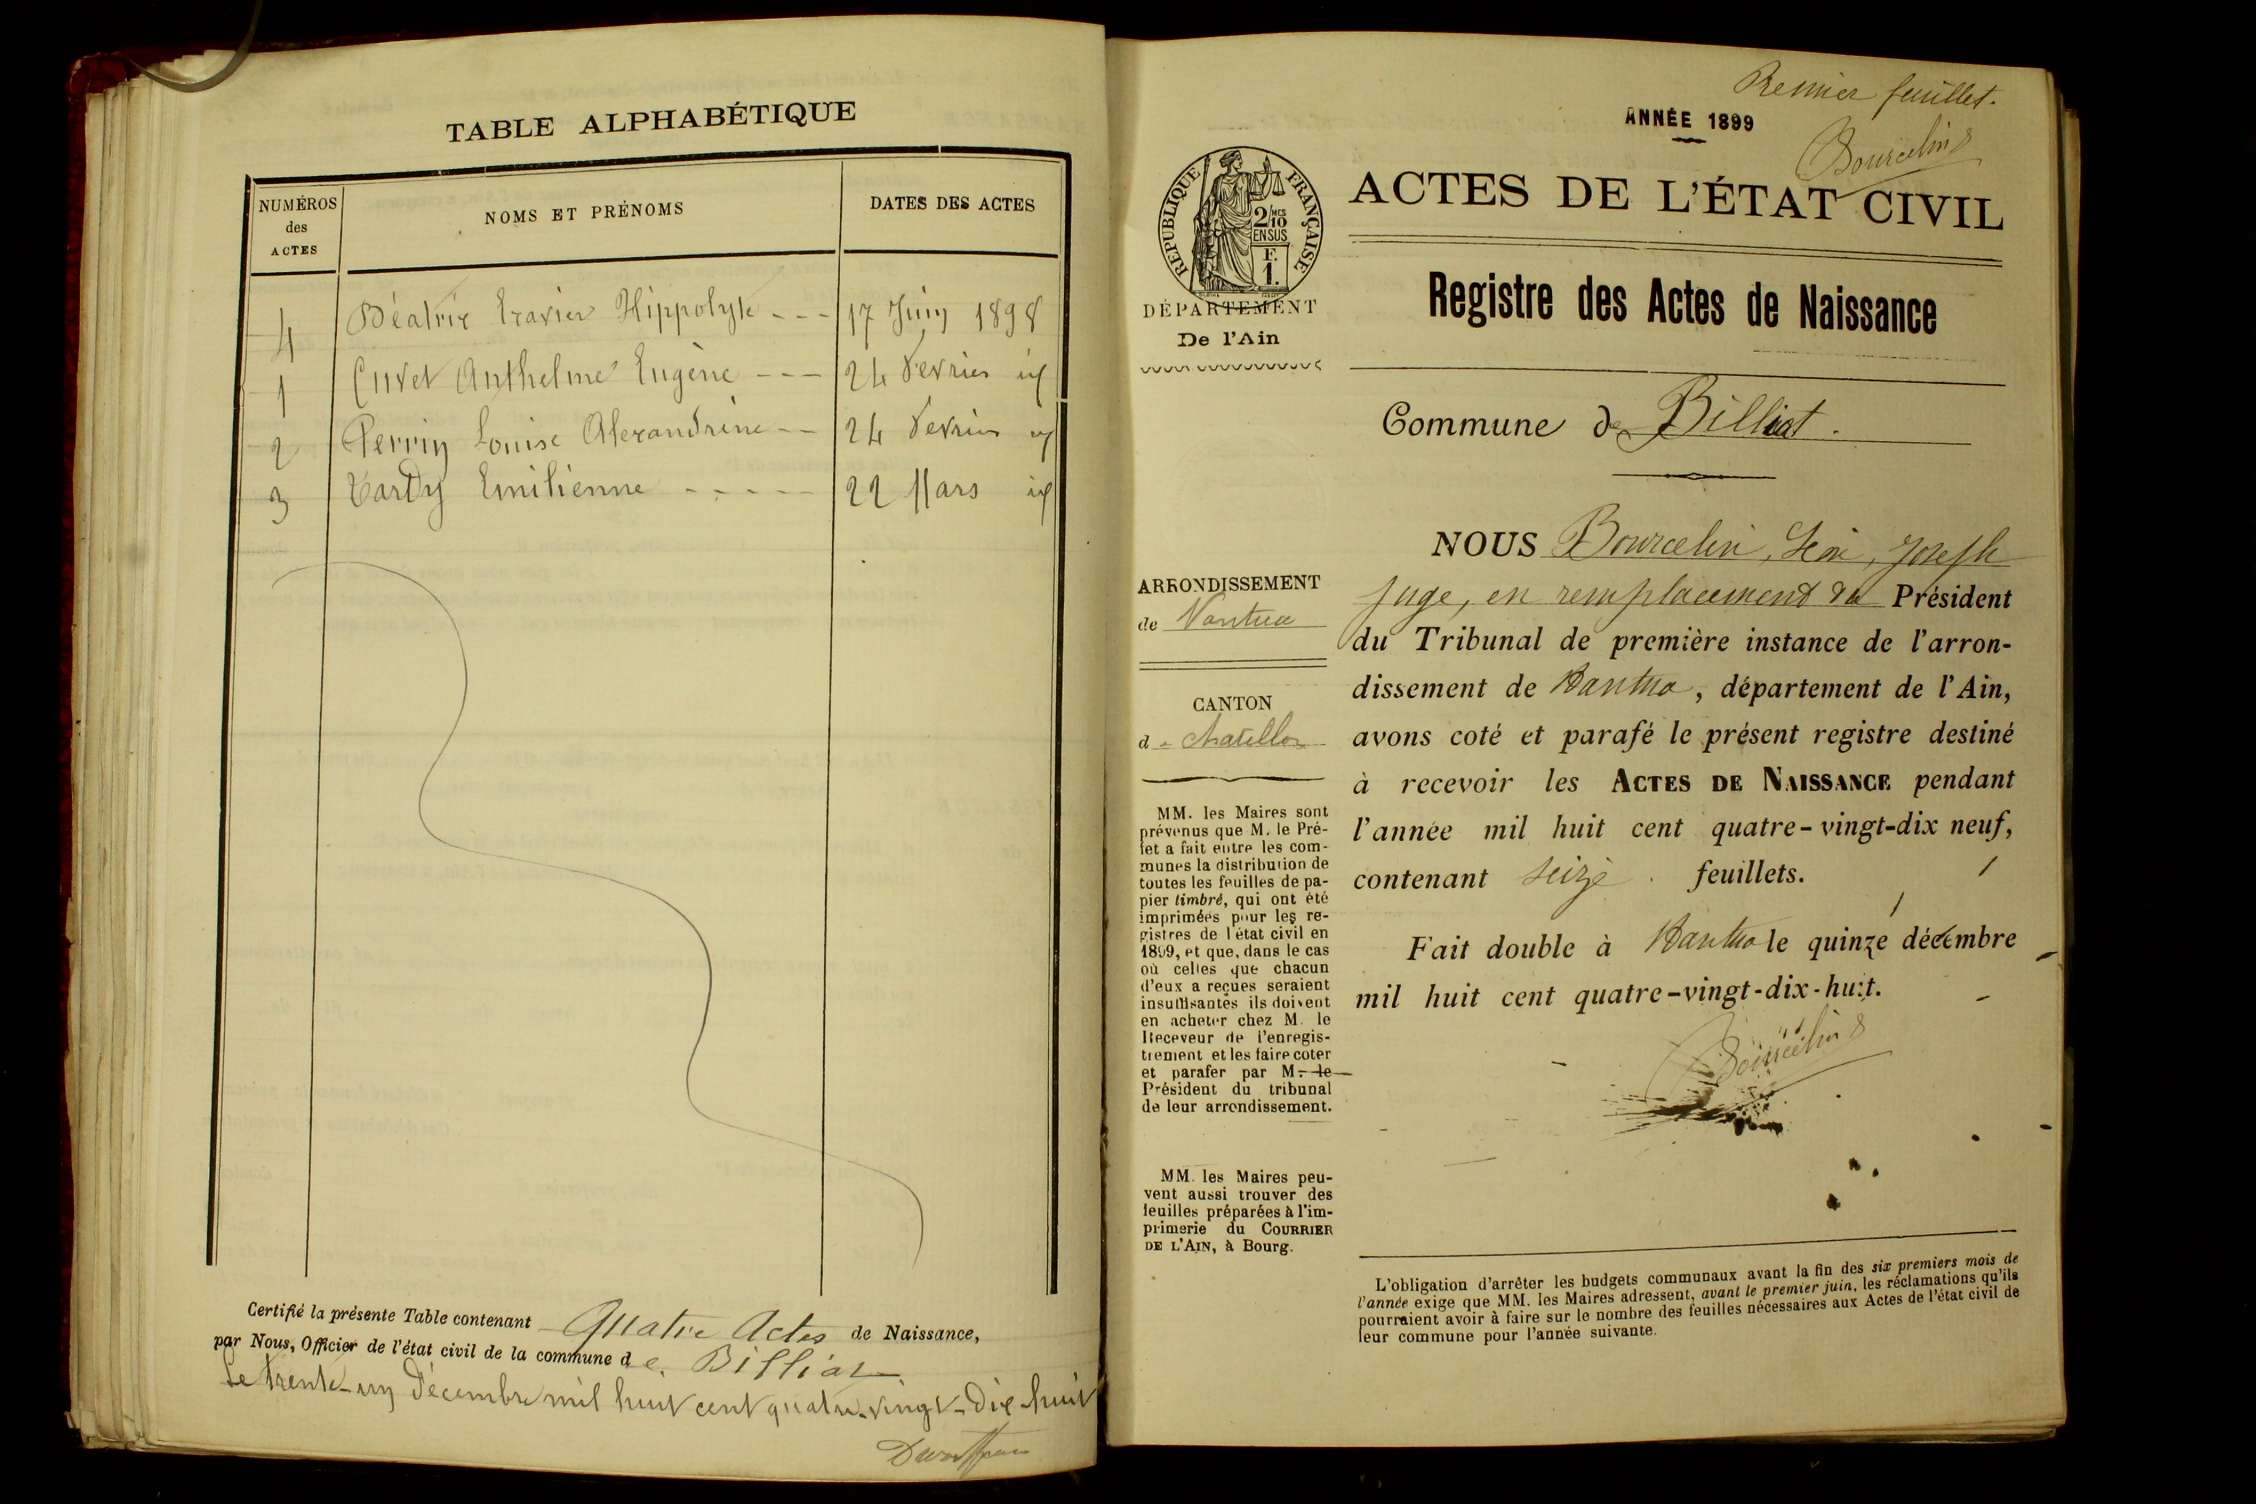 TABLE ALPHABÉTIQUE
NUMÉROS des ACTES
NOMS ET PRÉNOMS
DATES DES ACTES
4 Béatrix Xavier Hippolyte --- 17 Juin 1898
1 Cuvet Anthelme Eugène --- 24 Février id
2 Perrin Louise Alexandrine -- 24 Février id
3 Tardy Emilienne ----- 22 Mars id
Certifié la présente Table contenant Quatre Actes de Naissance,
par Nous, Officier de l'état civil de la commune de Billiat
Le trente-un Décembre mil huit cent quatre-vingt-Dix-huit
Premier feuillet.
ANNÉE 1899
Bourcelin
RÉPUBLIQUE FRANÇAISE
2/10 MES
EN SUS
F.
1.
DÉPARTEMENT
De l'Ain
ACTES DE L'ÉTAT CIVIL
Registre des Actes de Naissance
Commune de Billiat.
ARRONDISSEMENT
de Nantua
CANTON
de Chatillon
MM. les Maires sont
prévenus que M. le Pré-
fet a fait entre les com-
munes la distribution de
toutes les feuilles de pa-
pier timbré, qui ont été
imprimées pour les re-
gistres de l'état civil en
1899, et que, dans le cas
où celles que chacun
d'eux a reçues seraient
insuffisantes ils doivent
en acheter chez M. le
Receveur de l'enregis-
trement et les faire coter
et parafer par M. le
Président du tribunal
de leur arrondissement.
MM. les Maires peu-
vent aussi trouver des
feuilles préparées à l'im-
primerie du COURRIER
DE L'AIN, à Bourg.
NOUS Bourcelin, Léon, Joseph
Juge, en remplacement du Président
du Tribunal de première instance de l'arron-
dissement de Nantua, département de l'Ain,
avons coté et parafé le présent registre destiné
à recevoir les ACTES DE NAISSANCE pendant
l'année mil huit cent quatre-vingt-dix neuf,
contenant seize feuillets.
Fait double à Nantua le quinze décembre
mil huit cent quatre-vingt-dix-huit.
Bourcelin
L'obligation d'arrêter les budgets communaux avant la fin des six premiers mois de
l'année exige que MM. les Maires adressent, avant le premier juin, les réclamations qu'ils
pourraient avoir à faire sur le nombre des feuilles nécessaires aux Actes de l'état civil de
leur commune pour l'année suivante.